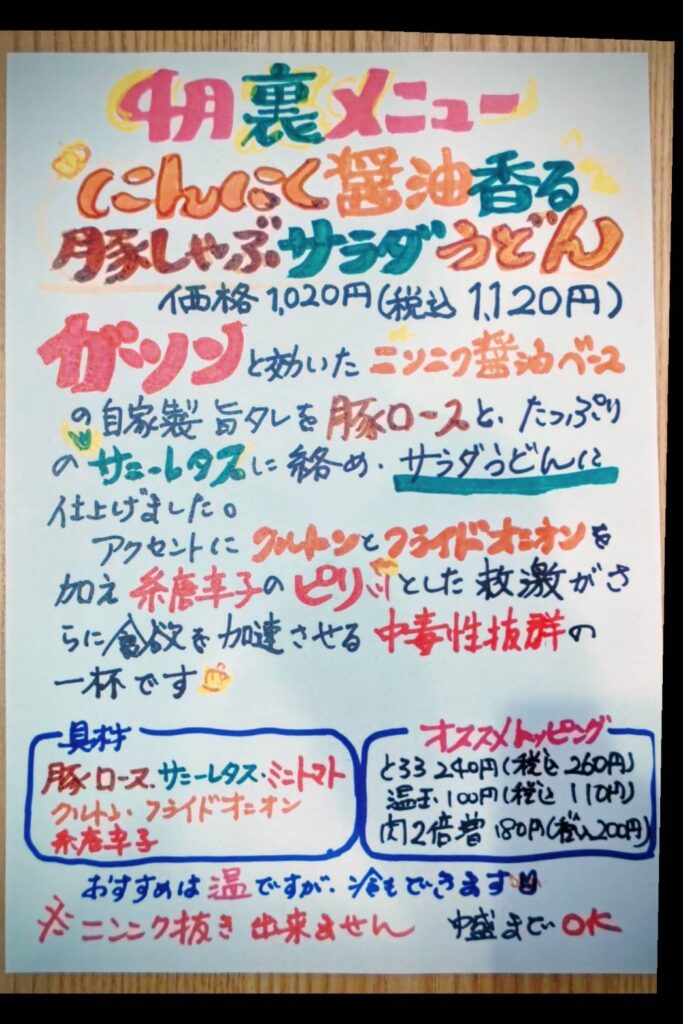 4月裏メニュー
にんにく醤油香る
豚しゃぶサラダうどん
価格1,020円(税込1,120円)
ガツンと効いたニンニク醤油ベース
の自家製旨タレを豚ロースと、たっぷり
のサニーレタスに絡め、サラダうどんに
仕上げました。
アクセントにクルトンとフライドオニオンを
加え糸唐辛子のピリッとした刺激がさ
らに食欲を加速させる中毒性抜群の
一杯です
具材
豚ロース・サニーレタス・ミニトマト
クルトン・フライドオニオン
糸唐辛子
オススメトッピング
とろろ240円(税込260円)
温玉100円(税込110円)
肉2倍増180円(税込200円)
おすすめは温ですが、冷もできます
※ニンニク抜き出来ません 中盛までOK